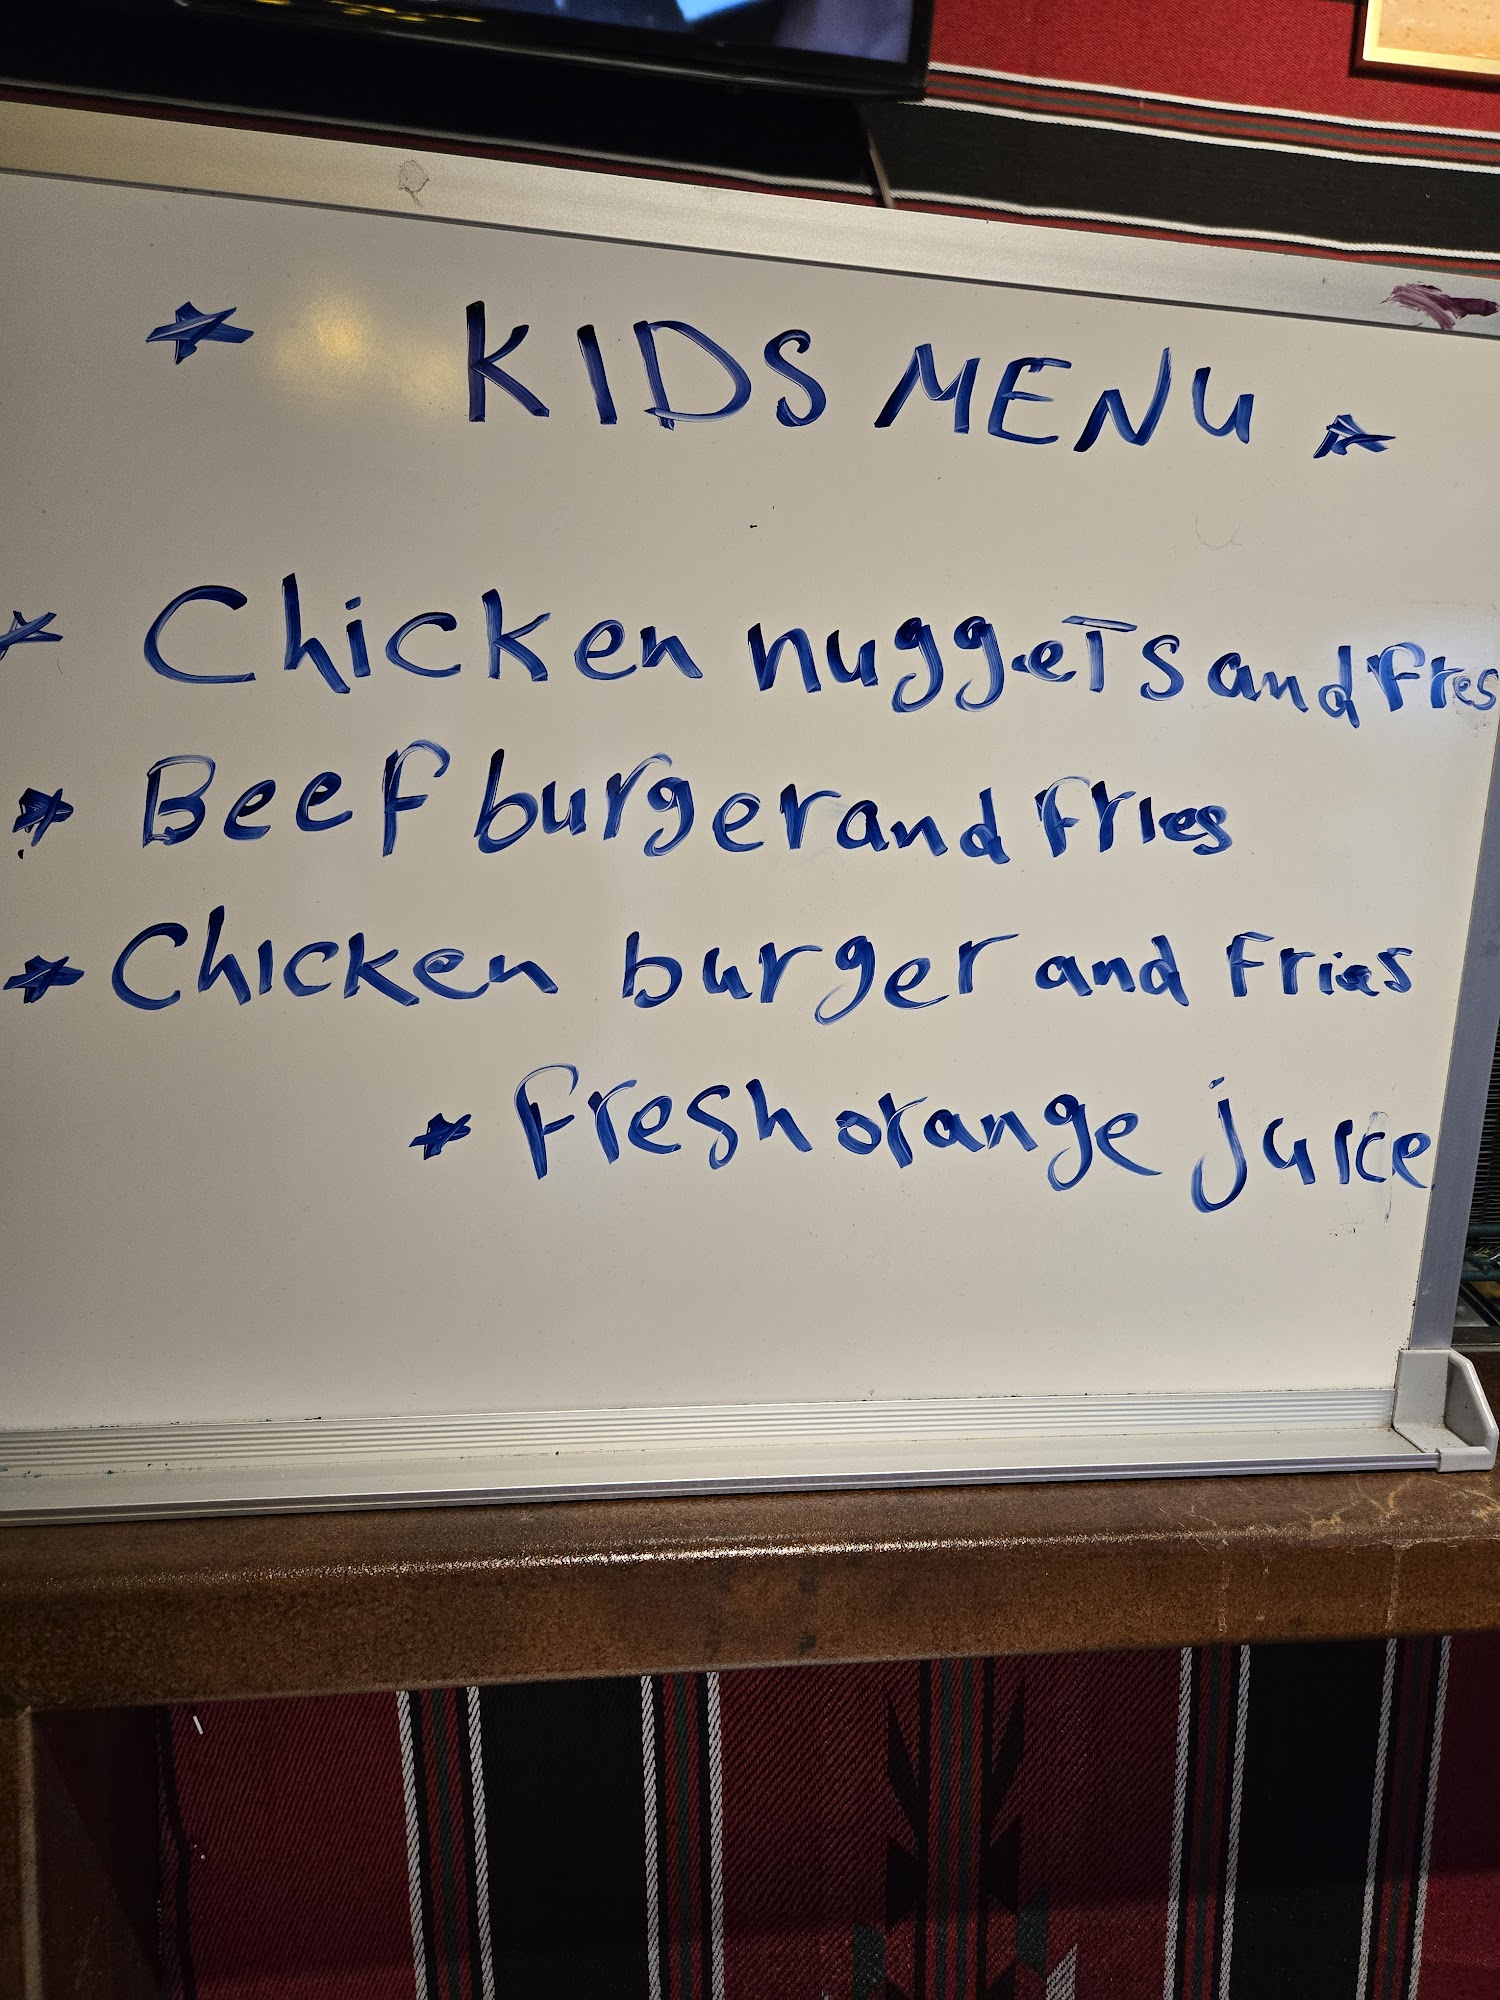 KIDS MENU
Chicken nuggets and fries
Beef burger and fries
Chicken burger and fries
Fresh orange juice